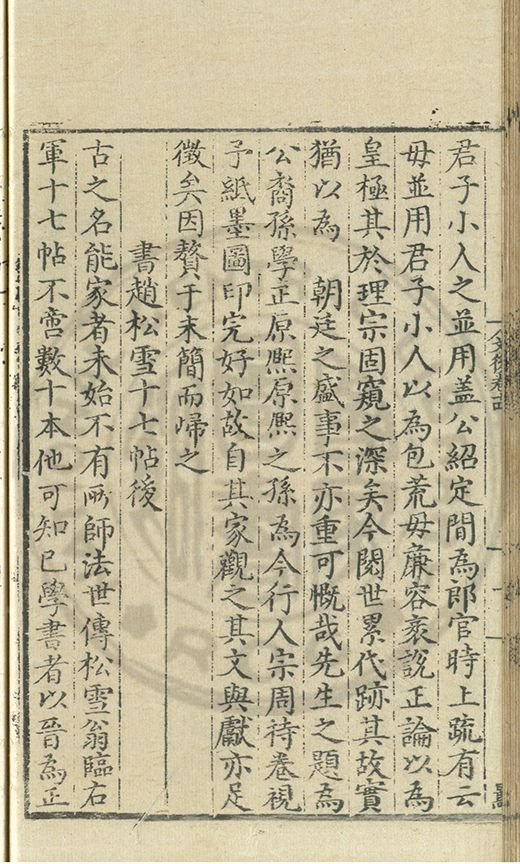 君子小人之並用盖公紹定間為郎官時上疏有云
毋並用君子小人以為包荒毋蔗容衺說正論以為
皇極其於理宗固窺之深矣今閱世累代跡其故實
猶以為　朝廷之盛事不亦重可慨哉先生之題為
公裔孫學正原熈原熈之孫為今行人宗周持卷視
予紙墨圖印完好如故自其家觀之其文與獻亦足
徵矣因贅于末簡而歸之
書趙松雪十七帖後
古之名能家者未始不有所師法世傳松雪翁臨右
軍十七帖不啻數十本他可知已學書者以晉為正